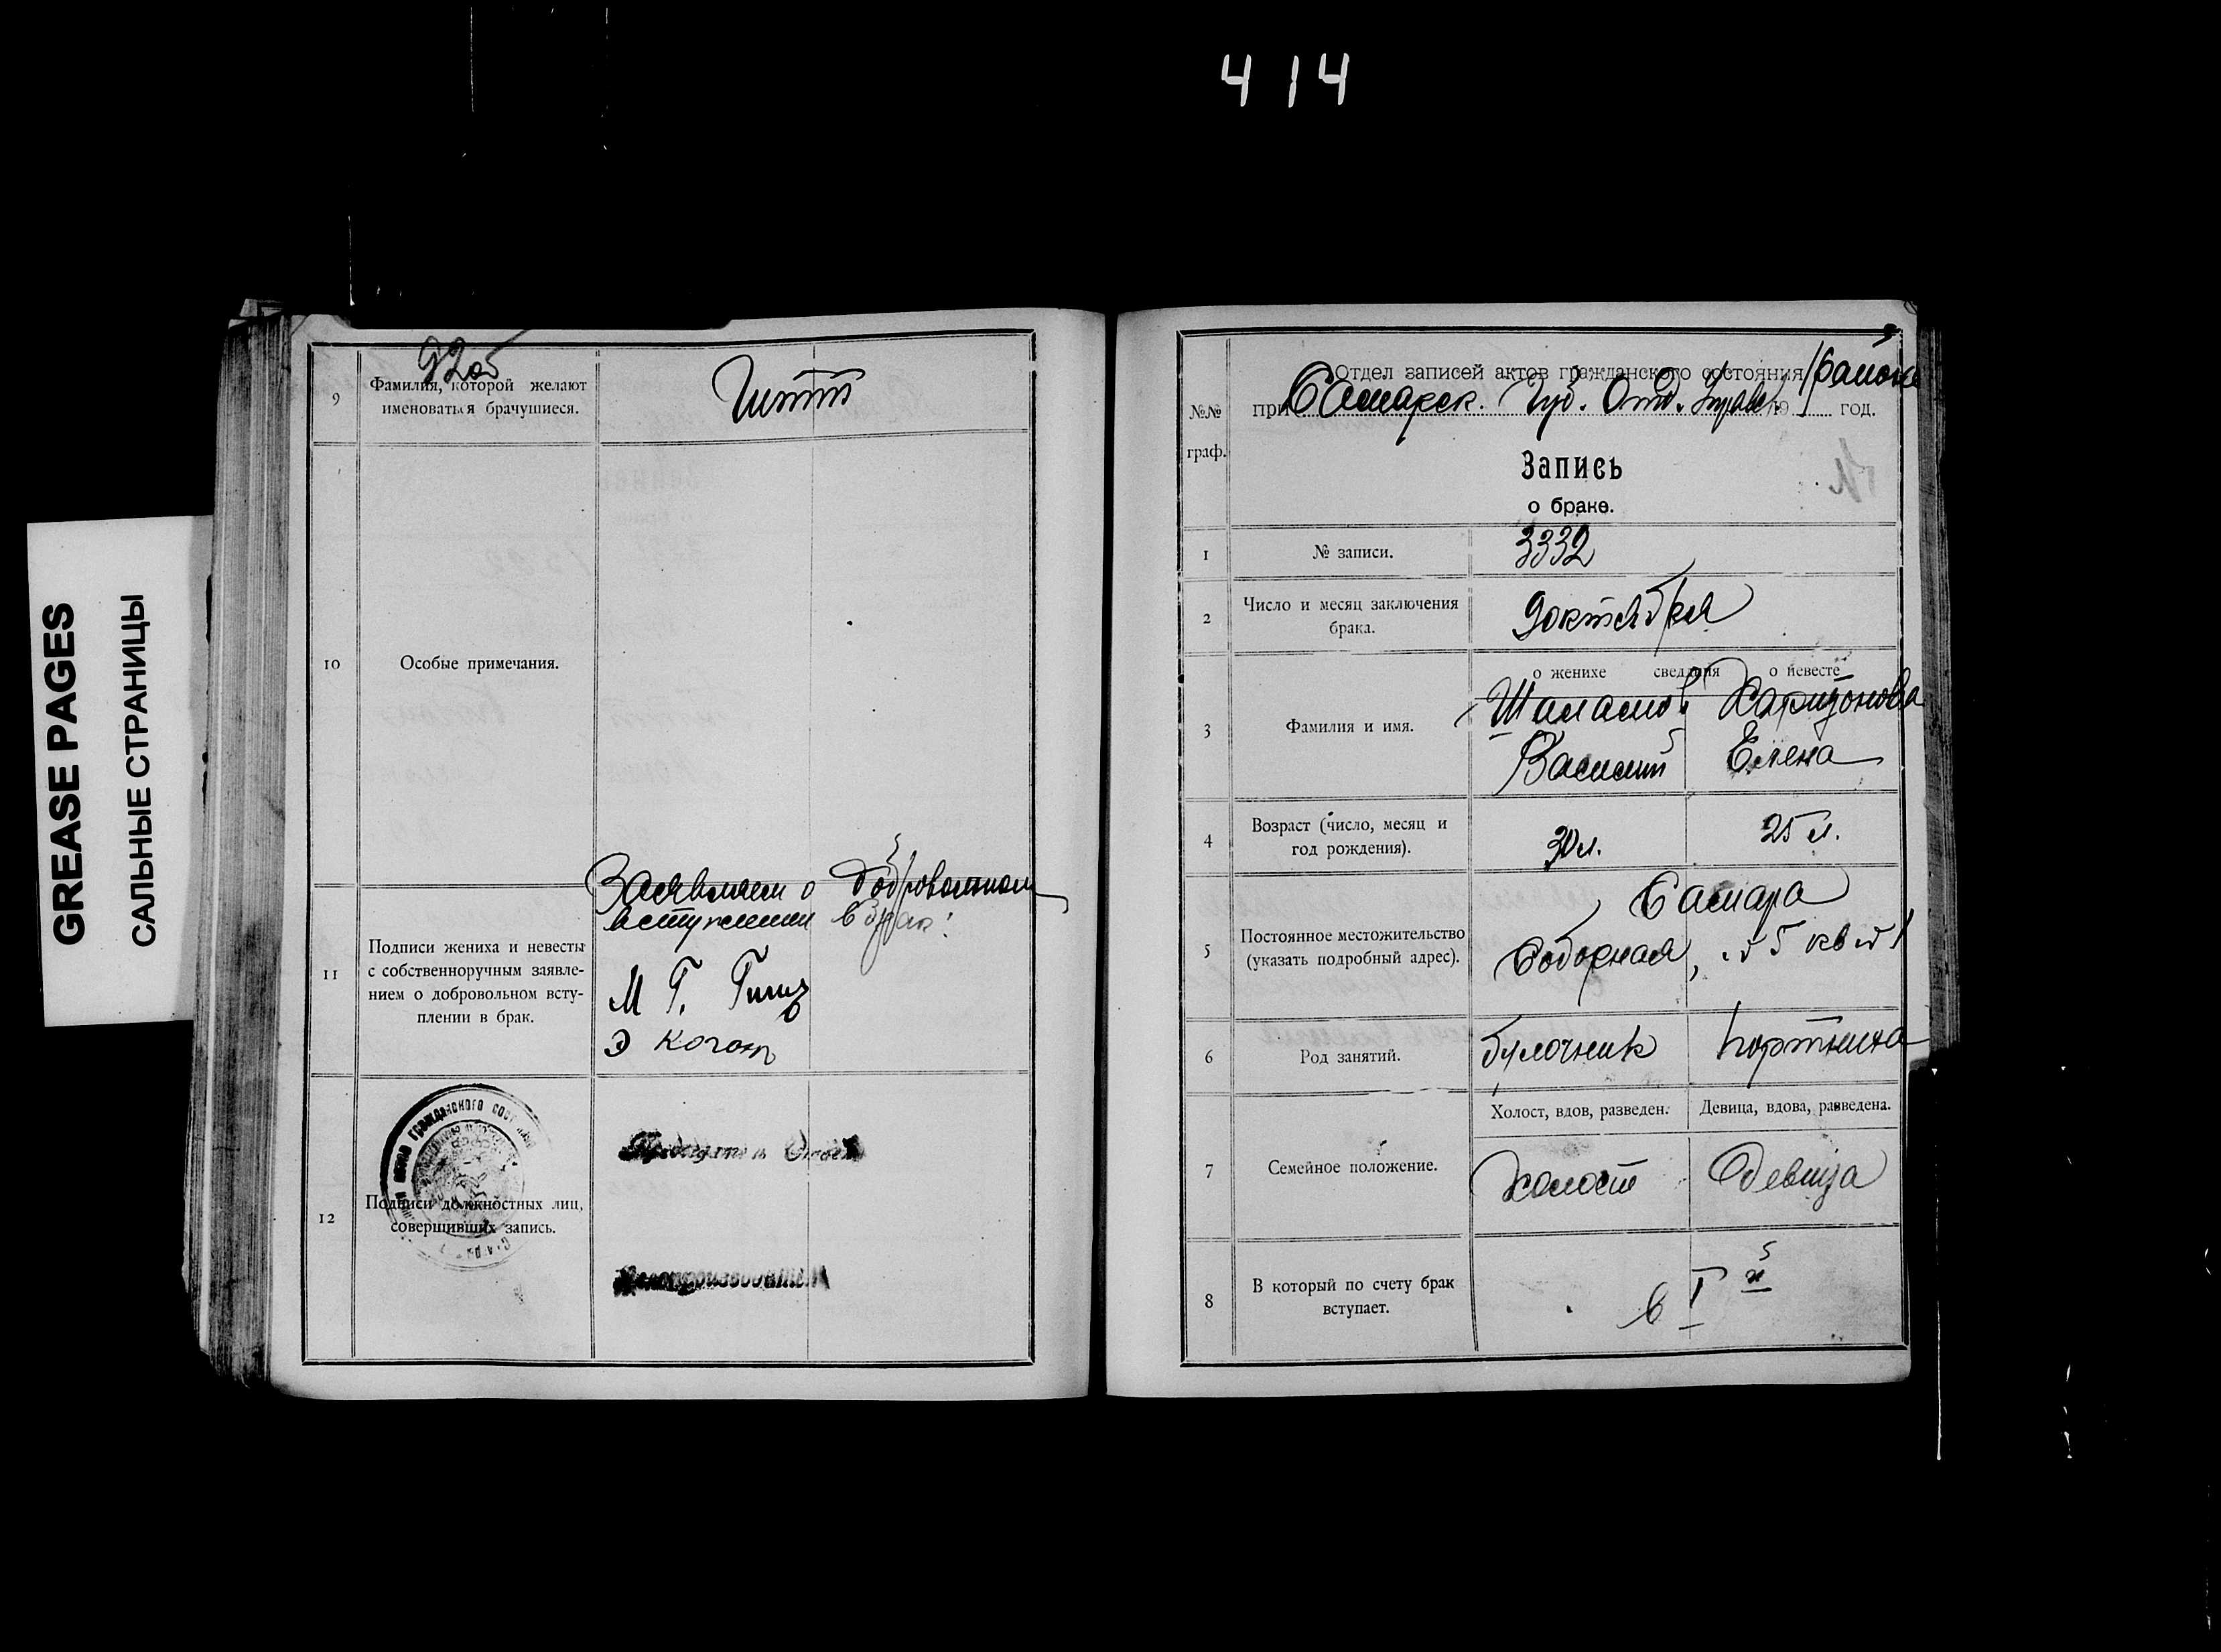 414
GREASE PAGES
САЛЬНЫЕ СТРАНИЦЫ
9
Фамилия, которой желают
именоваться брачущиеся.
10
Особые примечания.
11
Подписи жениха и невесты
с собственноручным заявле-
нием о добровольном всту-
плении в брак.
Заявляем о добровольном
вступлении в брак:
М Г.
Э Коган
12
Подписи должностных лиц,
совершивших запись.
Отдел записей актов гражданского состояния района
при Самарск. Губ. Отд. Управл. 19 год.
№№
граф.
Запись
о браке.
1
№ записи.
3332
2
Число и месяц заключения
брака.
9 октября
о женихе сведения о невесте
3
Фамилия и имя.
Шаламов Харитонова
Василий Елена
4
Возраст (число, месяц и
год рождения).
30 л. 25 л.
5
Постоянное местожительство
(указать подробный адрес).
Самара
Соборная, д 5 кв 1
6
Род занятий.
булочник портниха
Холост, вдов, разведен. Девица, вдова, разведена.
7
Семейное положение.
холост девица
8
В который по счету брак
вступает.
в I й